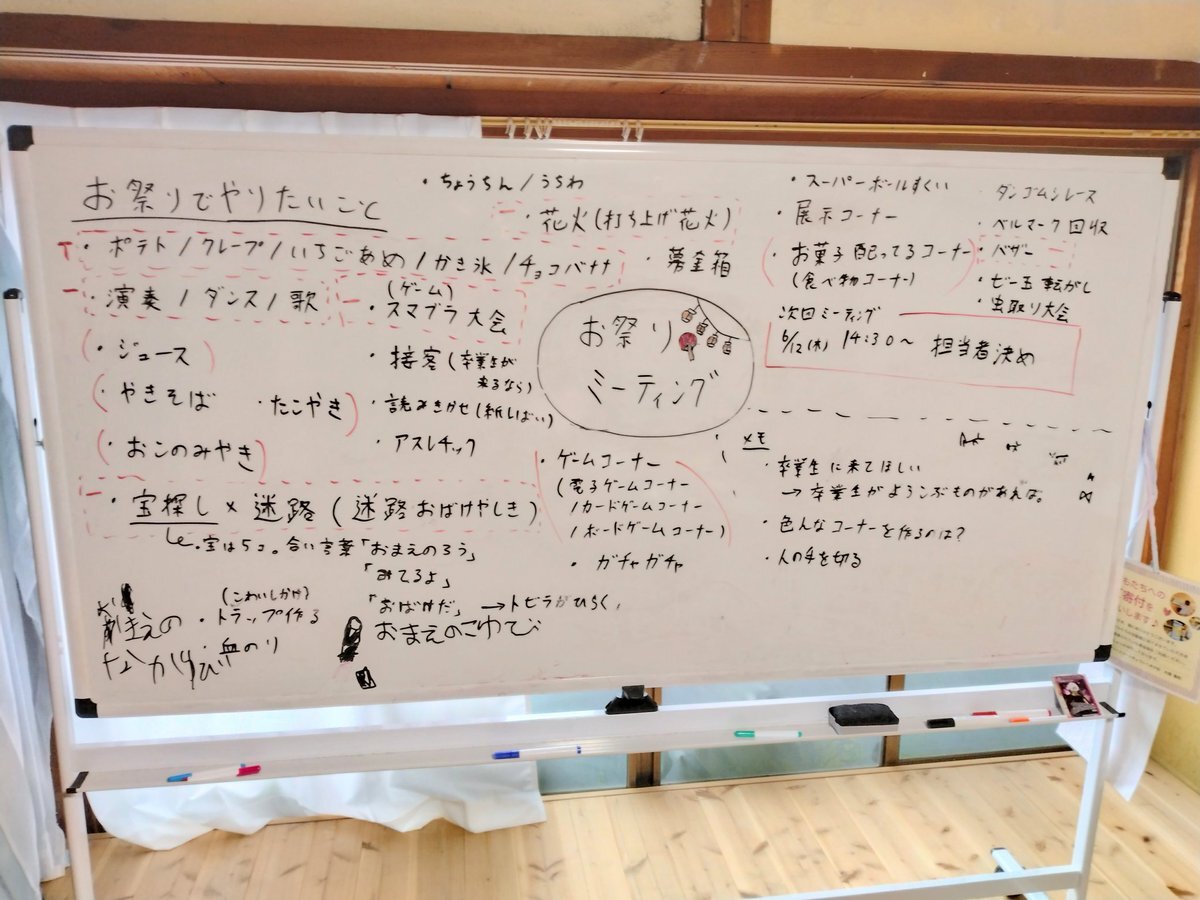 お祭りでやりたいこと
・ちょうちん/うちわ
・花火(打ち上げ花火)
・ポテト/クレープ/いちごあめ/かき氷/チョコバナナ
・募金箱
・演奏/ダンス/歌
(ゲーム)
・スマブラ大会
・ジュース
・接客(卒業生が
来るなら)
・やきそば
・たこやき
・読みきかせ(紙しばい)
・おこのみやき
・アスレチック
お祭り
ミーティング
・宝探し×迷路(迷路おばけやしき)
・宝は5コ。合い言葉「おまえのろう」
「みてるよ」
「おばけだ」→トビラがひらく
(こわいしかけ)
・トラップ作る
・血のり
おまえの
なかゆび
おまえのこゆび
・ゲームコーナー
(電子ゲームコーナー
/カードゲームコーナー
/ボードゲームコーナー)
・ガチャガチャ
・スーパーボールすくい
・展示コーナー
・お菓子配ってるコーナー
(食べ物コーナー)
ダンゴムシレース
・ベルマーク回収
・バザー
・ビー玉転がし
・虫取り大会
次回ミーティング
6/12(木) 14:30〜 担当者決め
メモ
・卒業生に来てほしい
→卒業生がようこぶものがあれば。
・色んなコーナーを作るのは?
・人の手を切る
もたちへの
寄付を
いします♪